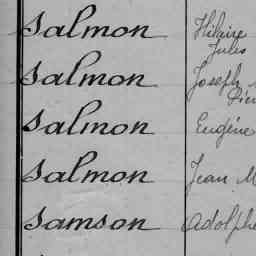 Salmon Hilaire
Jules
Salmon Joseph
Salmon Eugéne
Salmon Jean M
Samson Adolphe